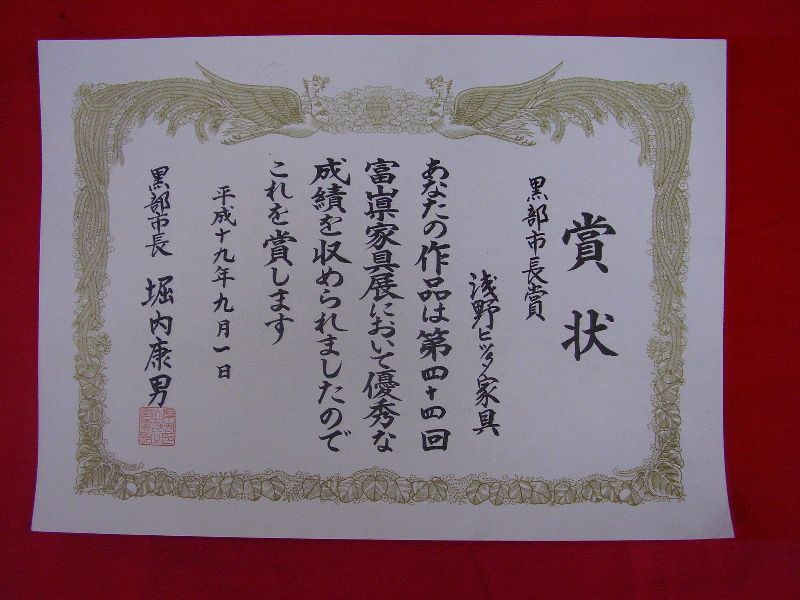 賞状
黒部市長賞
浅野ピッタ家具
あなたの作品は第四十四回
富山県家具展において優秀な
成績を収められましたので
これを賞します
平成十九年九月一日
黒部市長 堀内康男